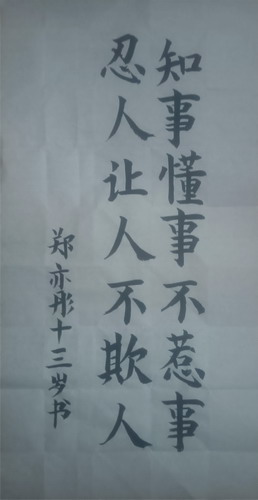 知事懂事不惹事
忍人让人不欺人
郑亦彤十三岁书